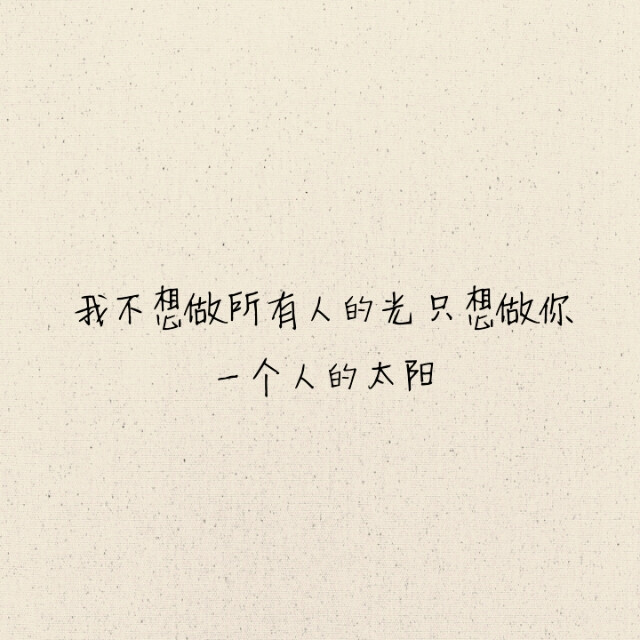 我不想做所有人的光 只想做你
一个人的太阳